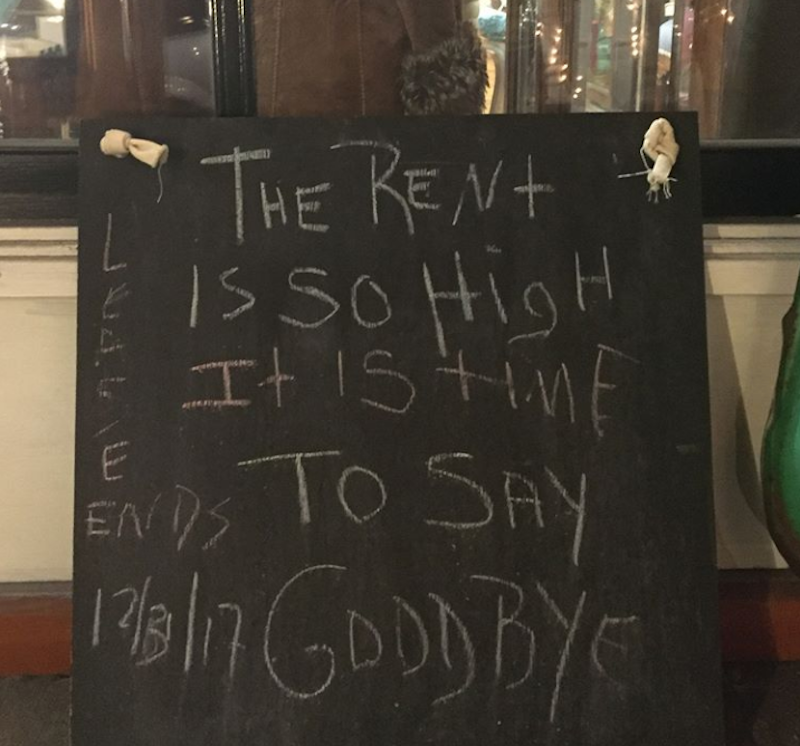 THE RENT
IS SO HiGH
It IS tiME
TO SAY
GOODBYE
LEASE
ENDS
12/31/17